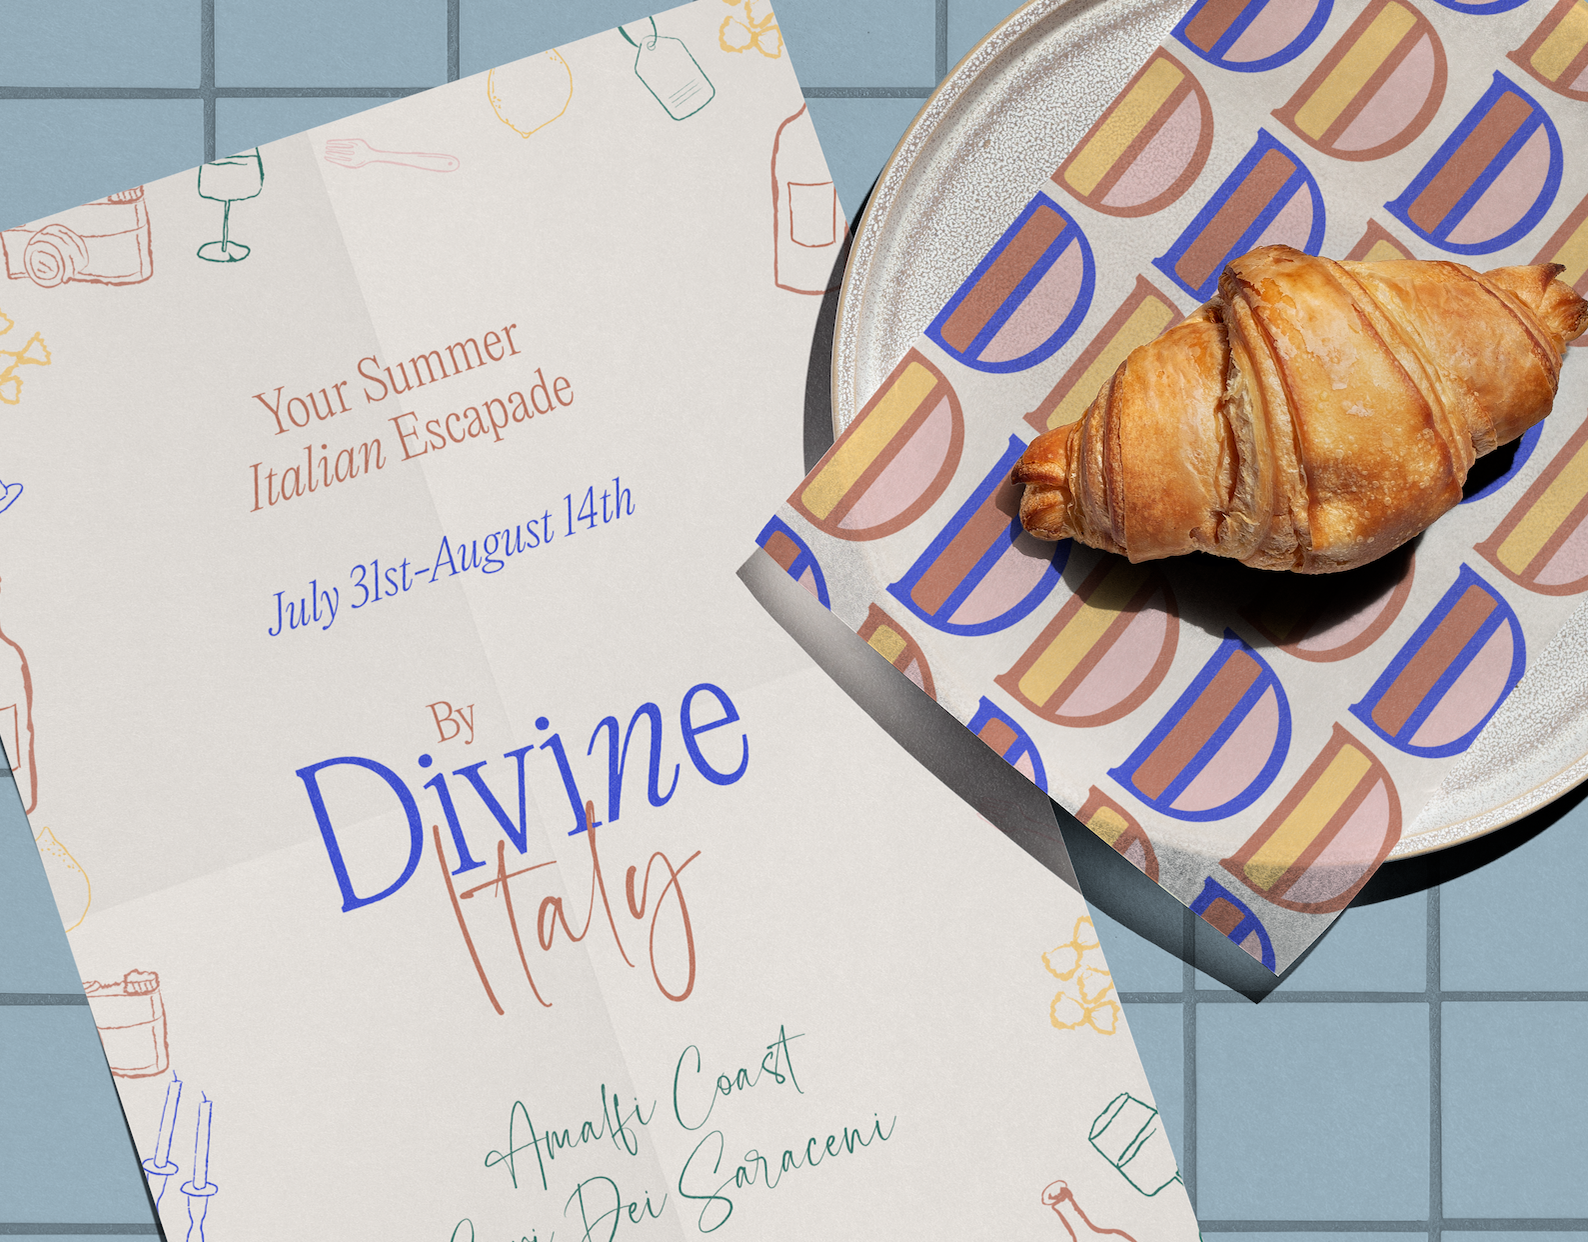 Your Summer
Italian Escapade
July 31st-August 14th
By
Divine
Italy
Amalfi Coast
Dei Saraceni
D D D D D D D D D D D D D D D D D D D D D D